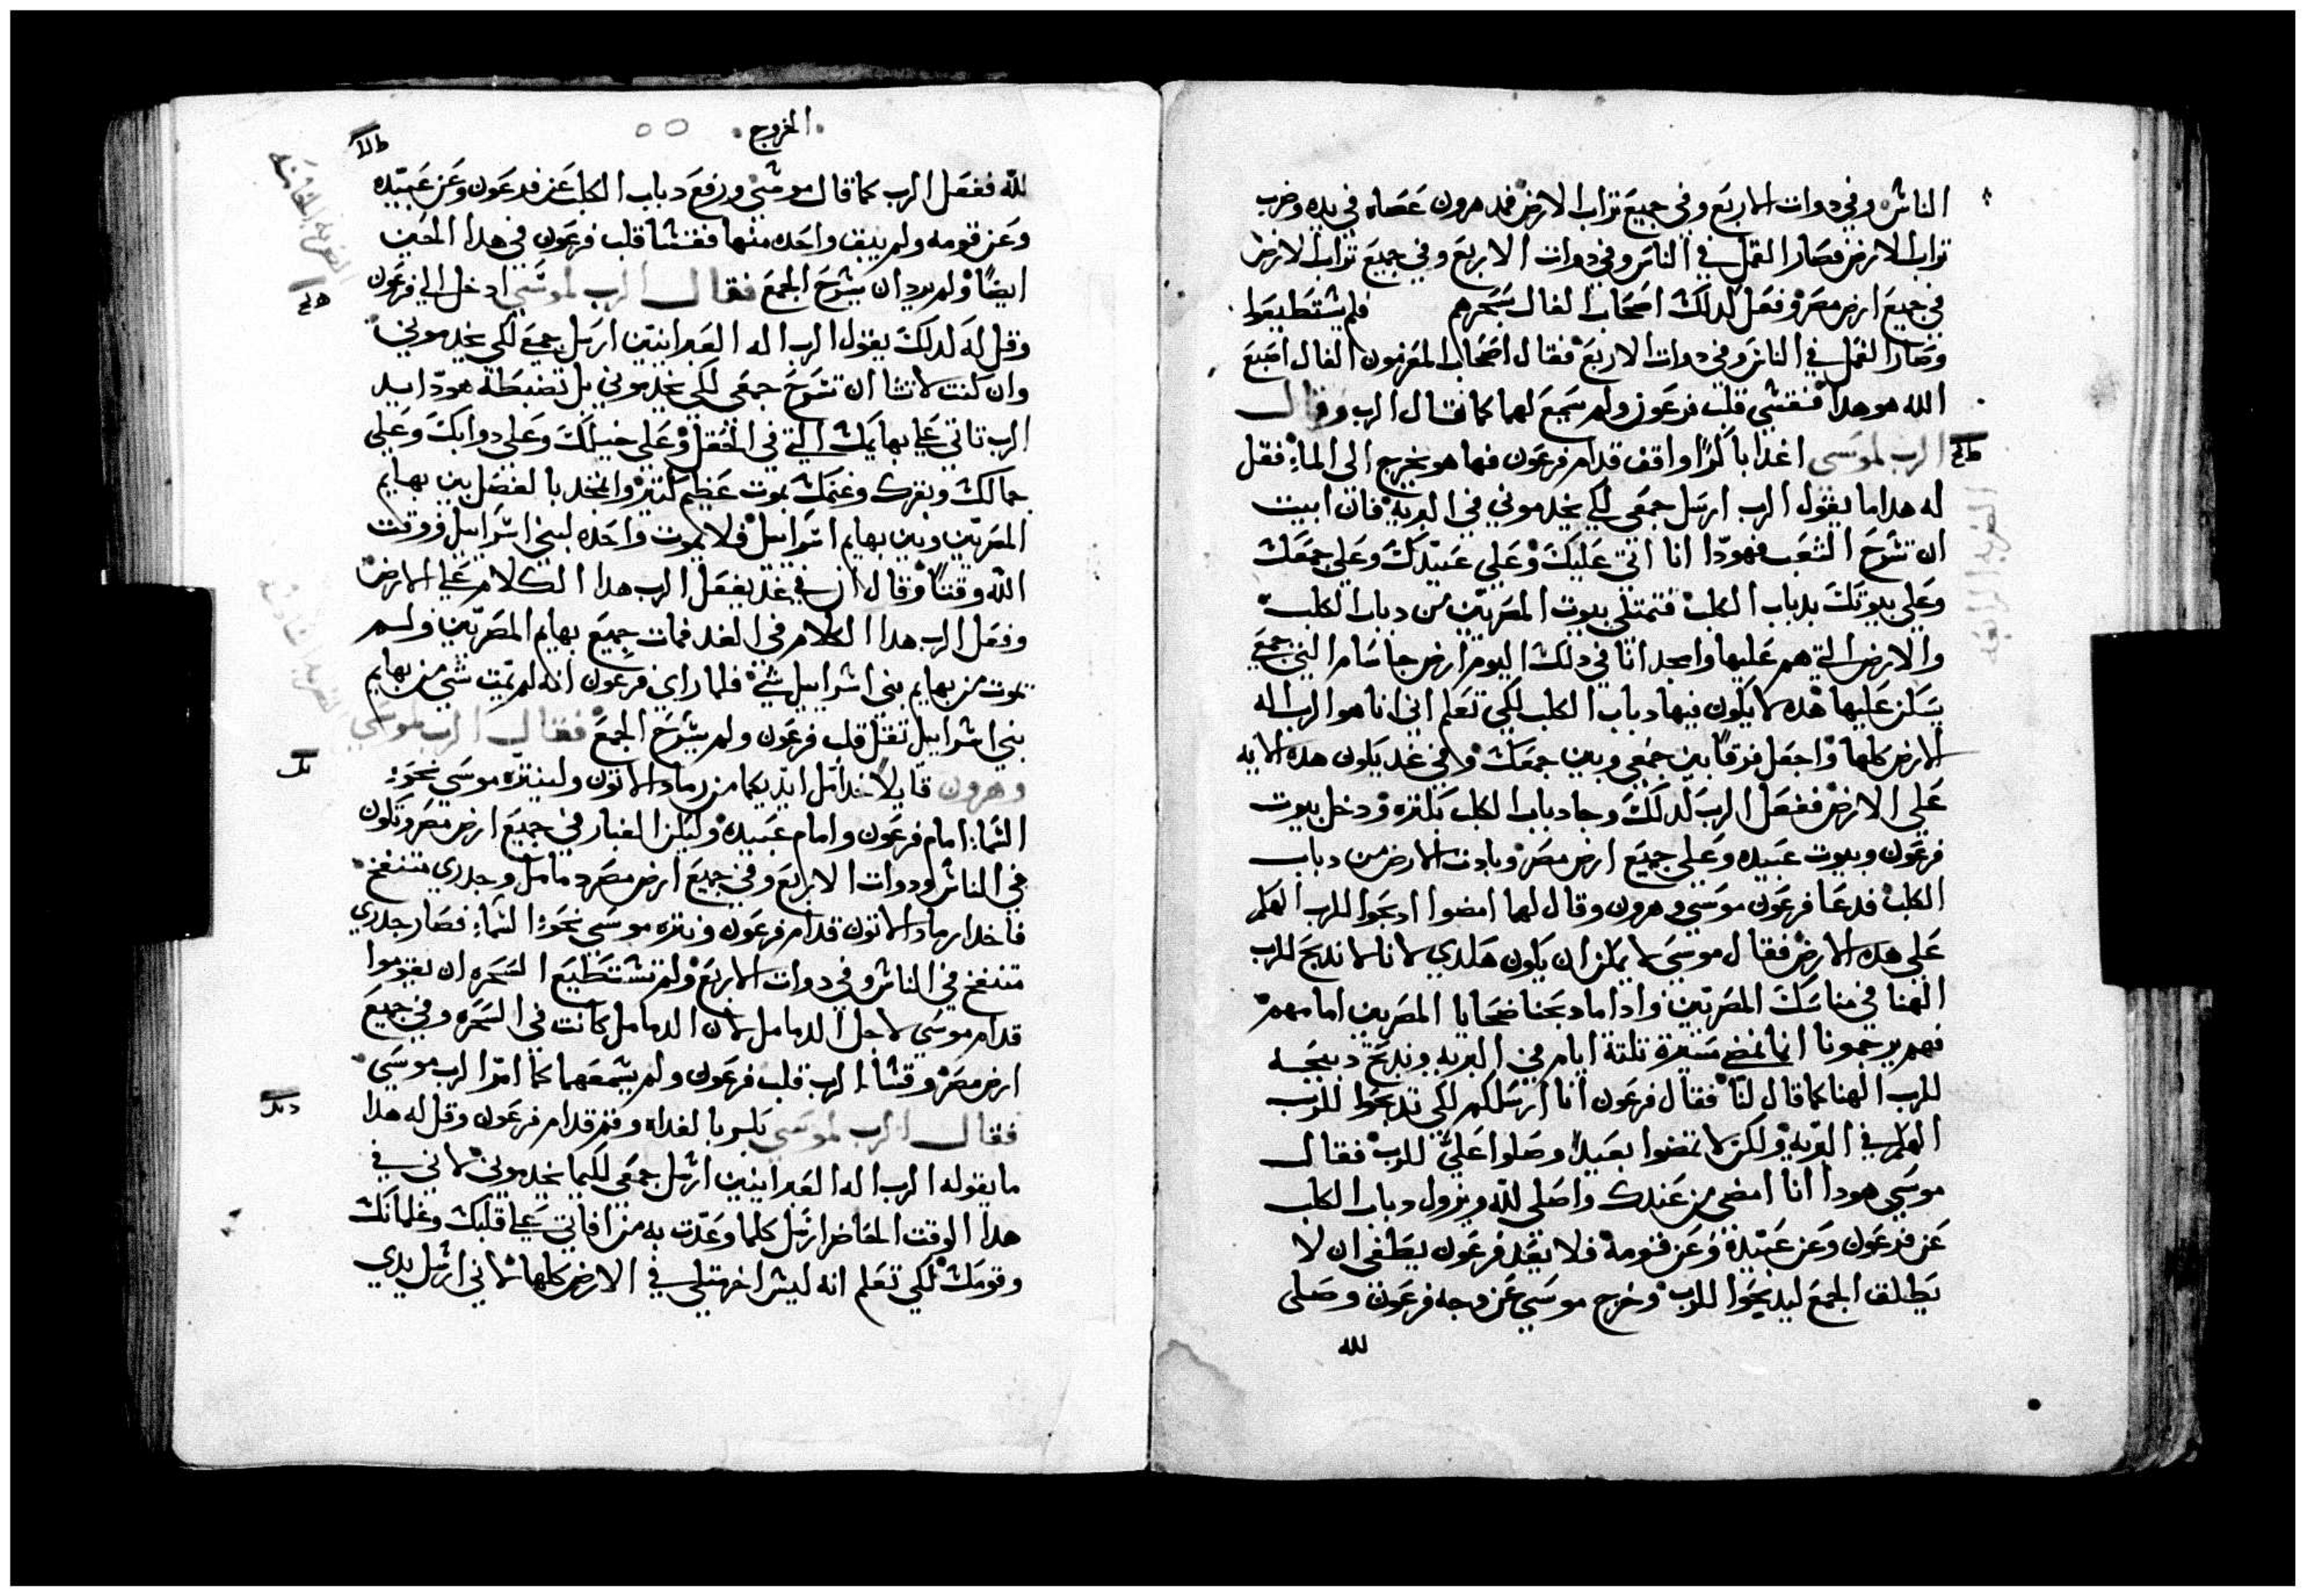 الناس وفي دوات الاربع وفي جميع تراب الارض فمد هرون عصاه في يده وضرب
تراب الارض فصار القمل في الناس وفي دوات الاربع وفي جميع تراب الارض
في جميع ارض مصر وفعل كدلك اصحاب الفال بسحرهم فلم يستطيعوا
وصار القمل في الناس وفي دوات الاربع فقال اصحاب المعزمون الفال اصبع
الله هو هدا فقسي قلب فرعون ولم يسمع لهما كما قال الرب وقال
الرب لموسى اغدا باكرا واقف قدام فرعون فها هو يخرج الى الماء فقل
له هدا ما يقول الرب ارسل جمعي لكي يخدموني في البريه فان ابيت
ان تسرح الشعب فهودا انا اتي عليك وعلى عبيدك وعلى جمعك
وعلى بيوتك بدباب الكلب فتمتلي بيوت المصريين من دباب الكلب
والارض التي هم عليها وامجد انا في دلك اليوم ارض جاسام التي جمعي
يسكن عليها هده لا يكون فيها دباب الكلب لكي تعلم اني انا هو الرب اله
الارض كلها واجعل فرقا بين جمعي وبين جمعك وفي غد يكون هده الايه
على الارض ففعل الرب كدلك وجا دباب الكلب بكتره ودخل بيوت
فرعون وبيوت عبيده وعلى جميع ارض مصر وبادت الارض من دباب
الكلب فدعا فرعون موسى وهرون وقال لهما امضوا ادبحوا للرب الهكم
على هده الارض فقال موسى لا يمكن ان يكون هكدي لاننا لا ندبح للرب
الهنا في مناسك المصريين وادا ما دبحنا ضحايا المصريين امامهم
فهم يرجمونا انما نمضي مسيرة تلتة ايام في البريه وندبح دبيحه
للرب الهنا كما قال لنا فقال فرعون انا ارسلكم لكي تدبحوا للرب
الهكم في البريه ولكن لا تمضوا بعيدا وصلوا علي للرب فقال
موسى هودا انا امضي من عندك واصلي لله ويزول دباب الكلب
عن فرعون وعن عبيده وعن قومه فلا يعد فرعون يطغى ان لا
يطلق الجمع ليدبحوا للرب وخرج موسى عن وجه فرعون وصلى
لله
الضربه الرابعه
الخروج
لله ففعل الرب كما قال موسى ورفع دباب الكلب عن فرعون وعن عبيده
وعن قومه ولم يبق واحده منها فقسا قلب فرعون في هدا الحين
ايضا ولم يرد ان يسرح الجمع فقال الرب لموسى ادخل الي فرعون
وقل له كدلك يقول الرب اله العبرانيين ارسل جمعي لكي يخدموني
وان كنت لا تشا ان تسرح جمعي لكي يخدموني بل تضبطه هودا يد
الرب تاتي على بهايمك التي في الحقل وعلى خيلك وعلى دوابك وعلى
جمالك وبقرك وغنمك بموت عظيم كتير وامجد بالفصل بين بهايم
المصريين وبين بهايم اسراييل فلا يموت واحده لبني اسراييل فوقت
الله وقتا وقال ان في غد يفعل الرب هدا الكلام على الارض
وفعل الرب هدا الكلام في الغد فمات جميع بهايم المصريين ولم
يموت من بهايم بني اسراييل شي فلما راى فرعون انه لم يمت شي من بهايم
بني اسراييل تقل قلب فرعون ولم يسرح الجمع فقال الرب لموسى
وهرون قايلا خدا مل ايديكما من رماد الاتون ولينتره موسى نحو
السماء امام فرعون وامام عبيده وليكن الغبار في جميع ارض مصر وتكون
في الناس ودوات الاربع وفي جميع ارض مصر دمامل وجدري منتفخ
فاخدا رماد الاتون قدام فرعون ونتره موسى نحو السماء فصار جدري
متنفخ في الناس وفي دوات الاربع ولم تستطيع السحره ان يقوموا
قدام موسى لاجل الدمامل لان الدمامل كانت في السحره وفي جميع
ارض مصر وقسا الرب قلب فرعون ولم يسمعهما كما امر الرب موسى
فقال الرب لموسى بكر بالغداه وقم قدام فرعون وقل له هدا
ما يقوله الرب اله العبرانيين ارسل جمعي لكيما يخدموني لاني في
هدا الوقت الحاضر ارسل كلما وعدت به من افاتي على قلبك وغلمانك
وقومك لكي تعلم انه ليس اخر متلي في الارض كلها لاني ارسل يدي